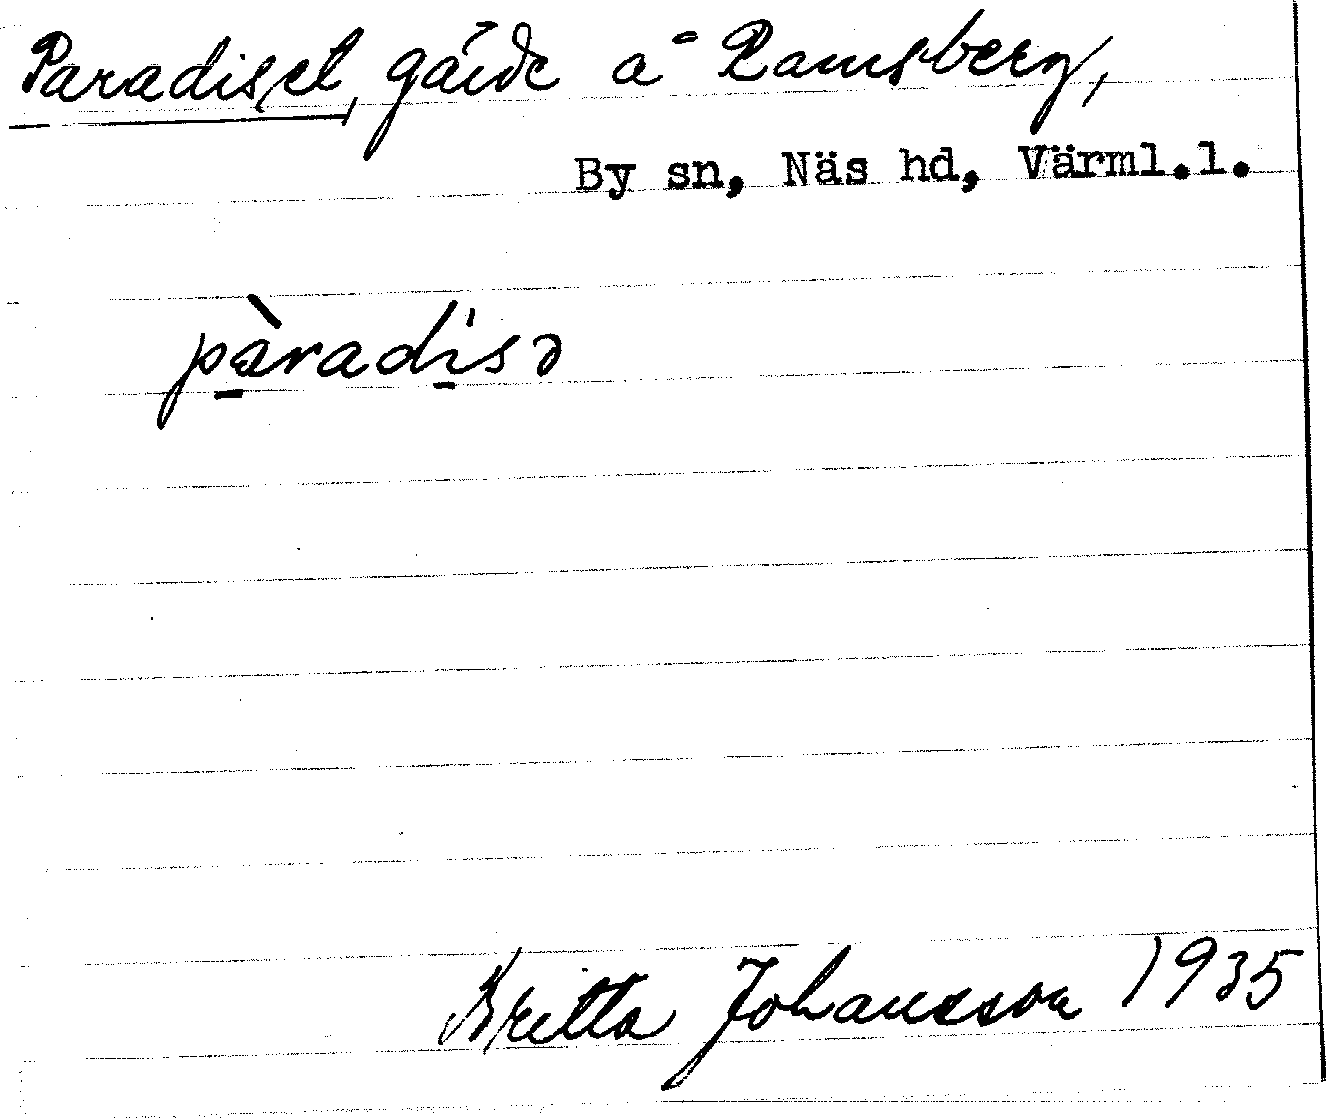 Paradiset, gärde å Ramsberg,
By sn, Näs hd, Värml.l.
pàradi̍sə
Britta Johansson 1935